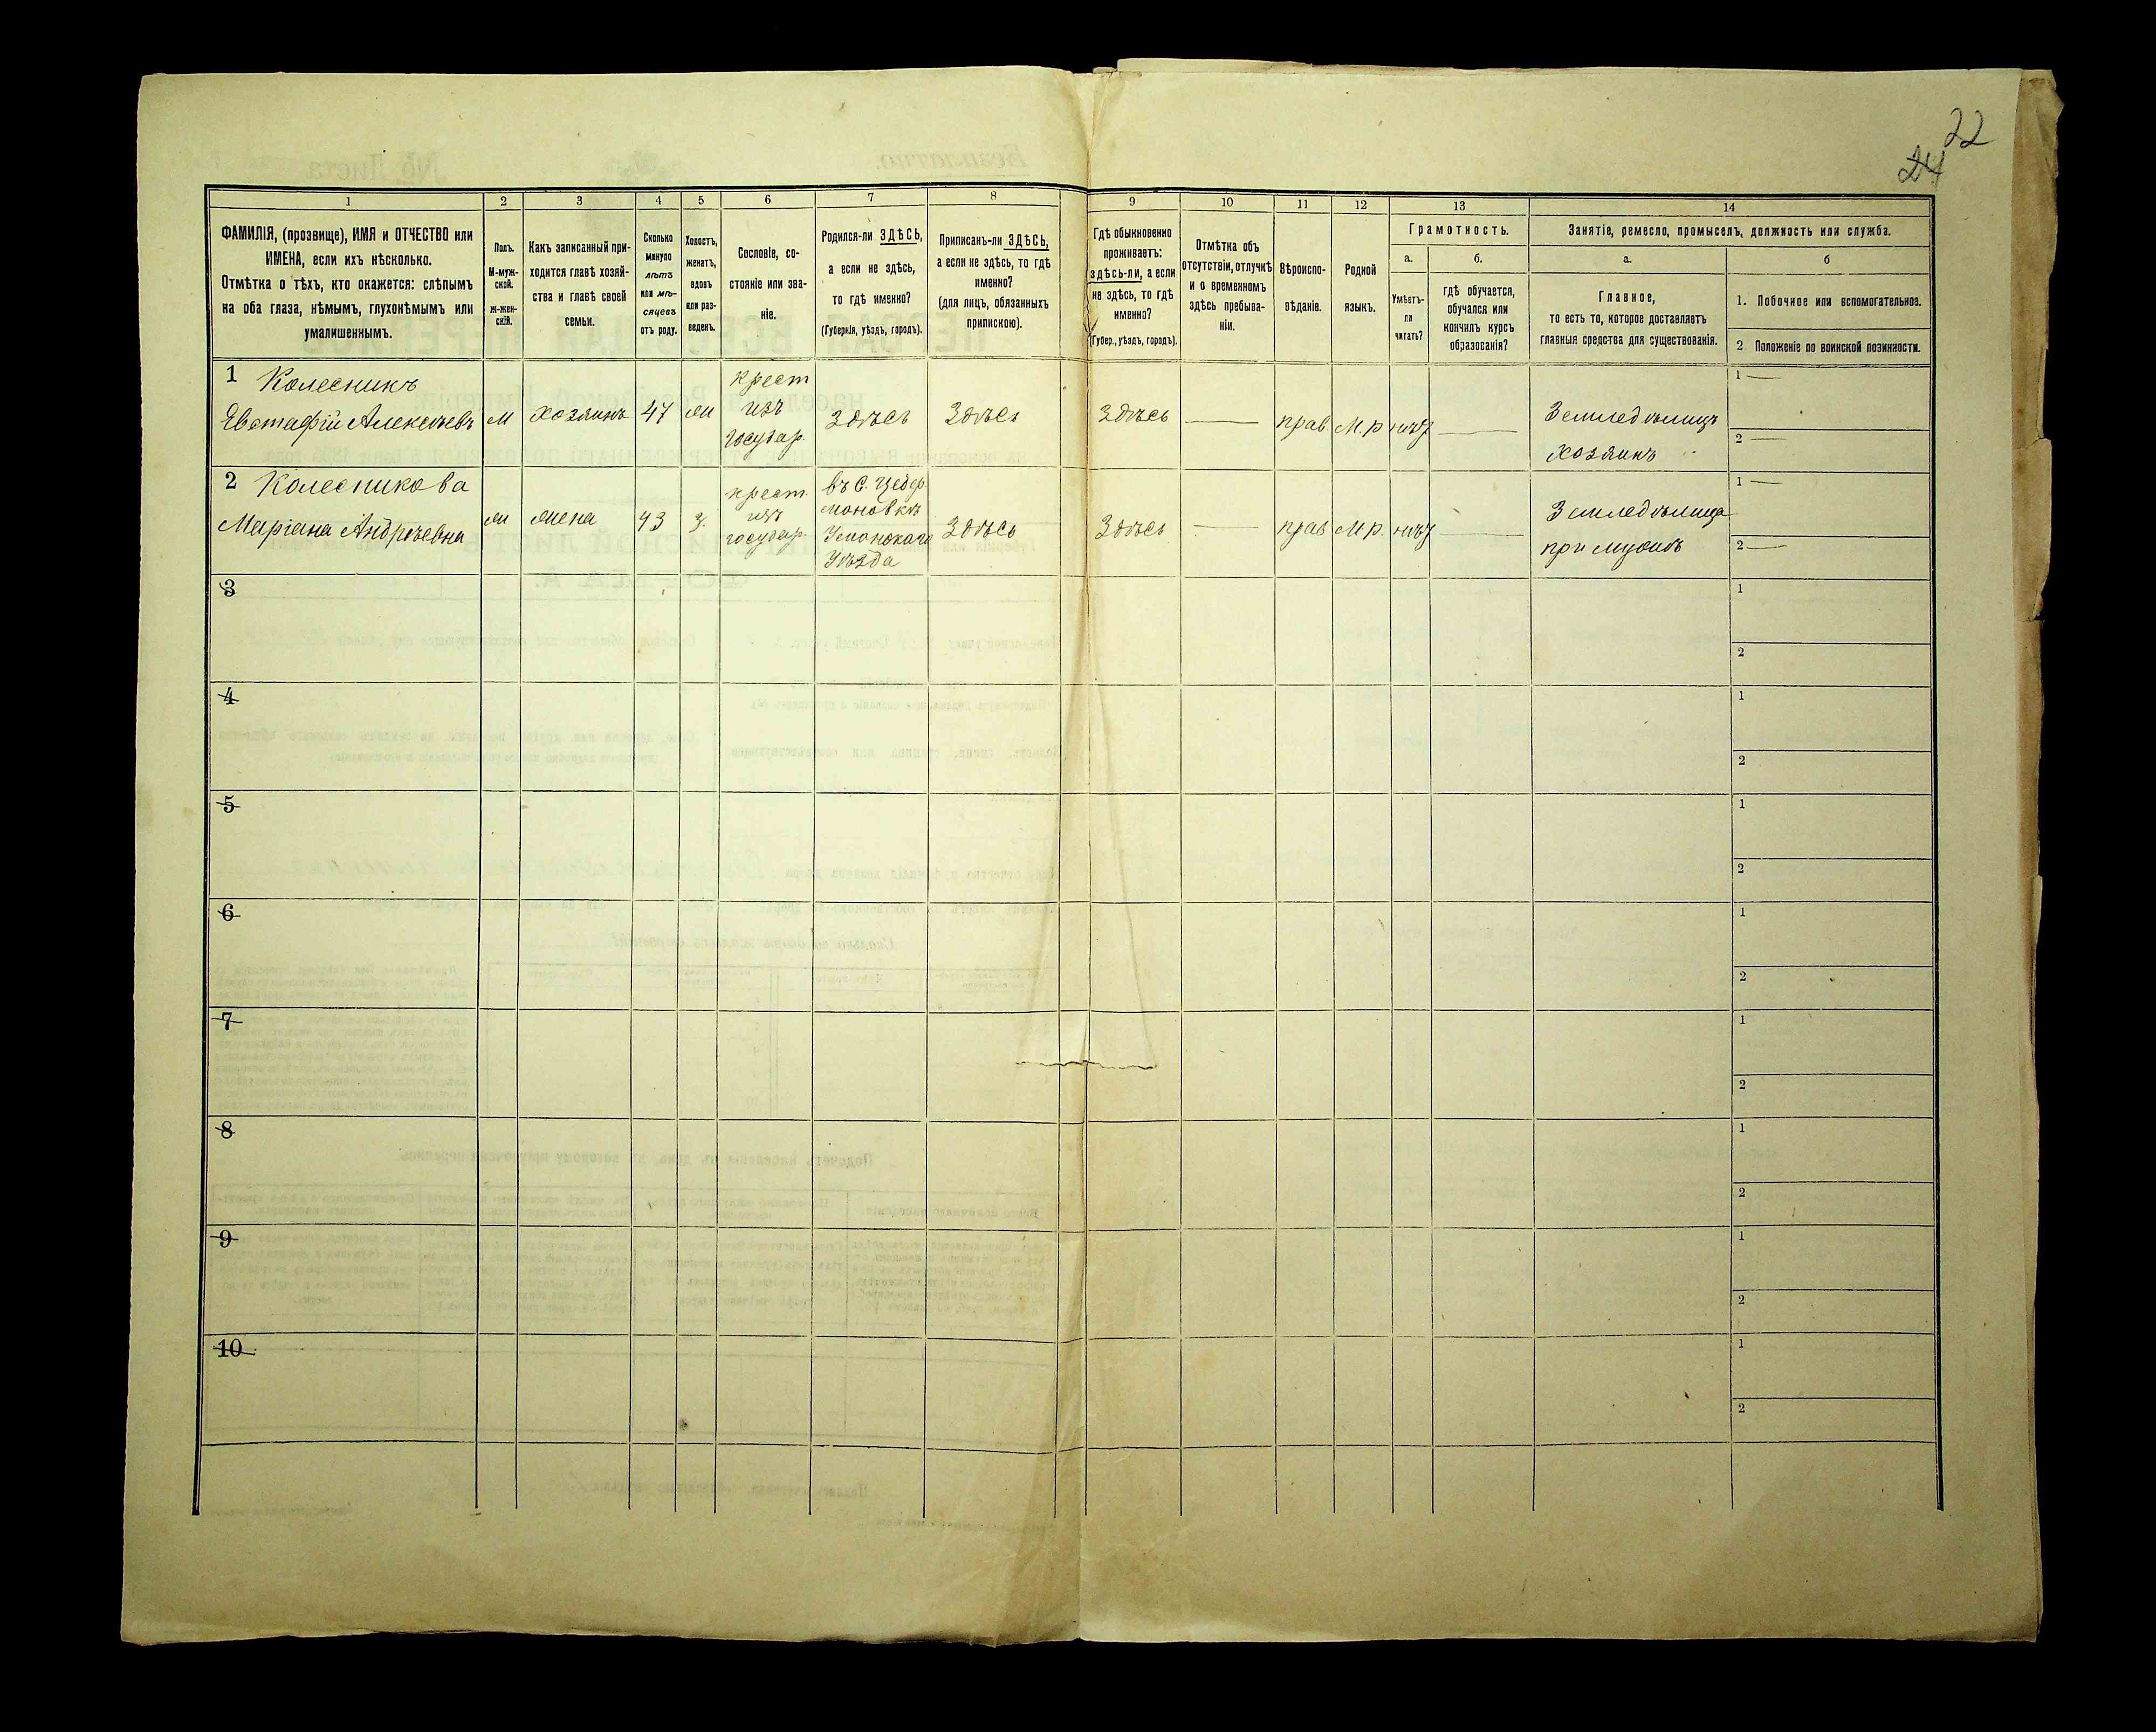 22
24
1 2 3 4 5 6 7 8 9 10 11 12 13 14
ФАМИЛІЯ, (прозвище), ИМЯ и ОТЧЕСТВО или
ИМЕНА, если ихъ нѣсколько.
Отмѣтка о тѣхъ, кто окажется: слѣпымъ
на оба глаза, нѣмымъ, глухонѣмымъ или
умалишеннымъ.
Полъ.
М-муж-
ской.
ж-жен-
скій.
Какъ записанный при-
ходится главѣ хозяй-
ства и главѣ своей
семьи.
Сколько
минуло
лѣтъ
или мѣ-
сяцевъ
отъ роду.
Холостъ,
женатъ,
вдовъ
или раз-
веденъ.
Сословіе, со-
стояніе или зва-
ніе.
Родился-ли ЗДѢСЬ,
а если не здѣсь,
то гдѣ именно?
(Губернія, уѣздъ, городъ).
Приписанъ-ли ЗДѢСЬ,
а если не здѣсь, то гдѣ
именно?
(для лицъ, обязанныхъ
припискою).
Гдѣ обыкновенно
проживаетъ:
здѣсь-ли, а если
не здѣсь, то гдѣ
именно?
(Губер., уѣздъ, городъ).
Отмѣтка объ
отсутствіи, отлучкѣ
и о временномъ
здѣсь пребыва-
ніи.
Вѣроиспо-
вѣданіе.
Родной
языкъ.
Грамотность.
а.
Умѣетъ-
ли
читать?
б.
гдѣ обучается,
обучался или
кончилъ курсъ
образованія?
Занятіе, ремесло, промыселъ, должность или служба.
а.
Главное,
то есть то, которое доставляетъ
главныя средства для существованія.
б
1. Побочное или вспомогательное.
2 Положеніе по воинской повинности.
1 Колесникъ
Евстафій Алексѣевъ
м
хозяинъ
47
ж
крест
изъ
государ.
Здѣсь
Здѣсь
Здѣсь
—
прав.
М. р
нѣтъ
—
Земледѣлецъ
хозяинъ
1 —
2 —
2 Колесникова
Маріана Андрѣевна
ж
жена
43
з.
крест.
изъ
государ.
въ с. Цебер
мановкѣ
Уманскаго
Уѣзда
Здѣсь
Здѣсь
—
прав
М р.
нѣтъ
—
Земледѣлица
при мужѣ
1 —
2 —
3
1
2
4
1
2
5
1
2
6
1
2
7
1
2
8
1
2
9
1
2
10
1
2